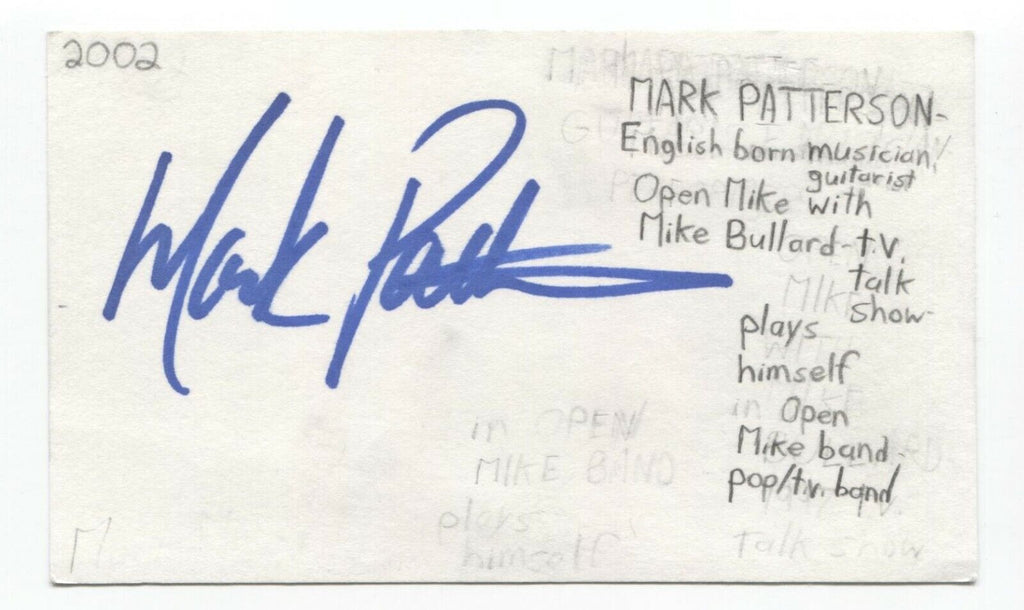 2002
MARK PATTERSON-
English born musician,
guitarist
Open Mike with
Mike Bullard-t.v.
talk
show-
plays
himself
in Open
Mike band-
pop/t.v. band
Mark Patt
in OPEN
MIKE BAND
plays
himself
MIKE
WITH
Talk show